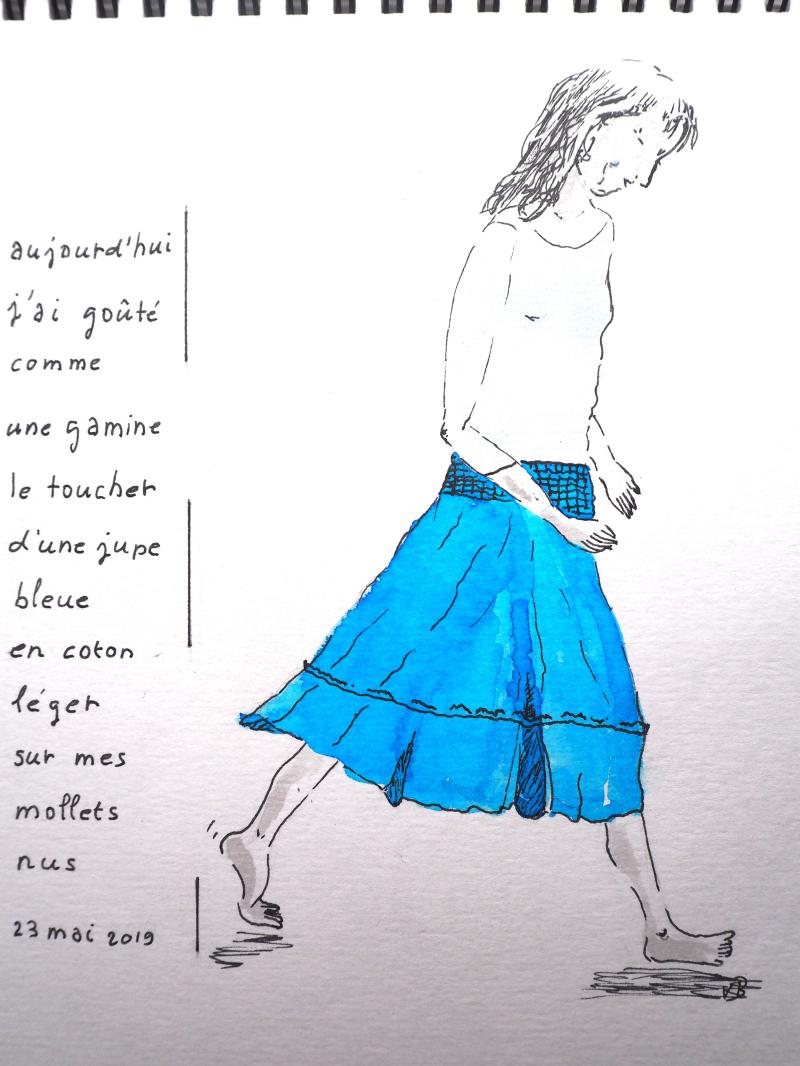 aujourd'hui
j'ai goûté
comme
une gamine
le toucher
d'une jupe
bleue
en coton
léger
sur mes
mollets
nus
23 mai 2019